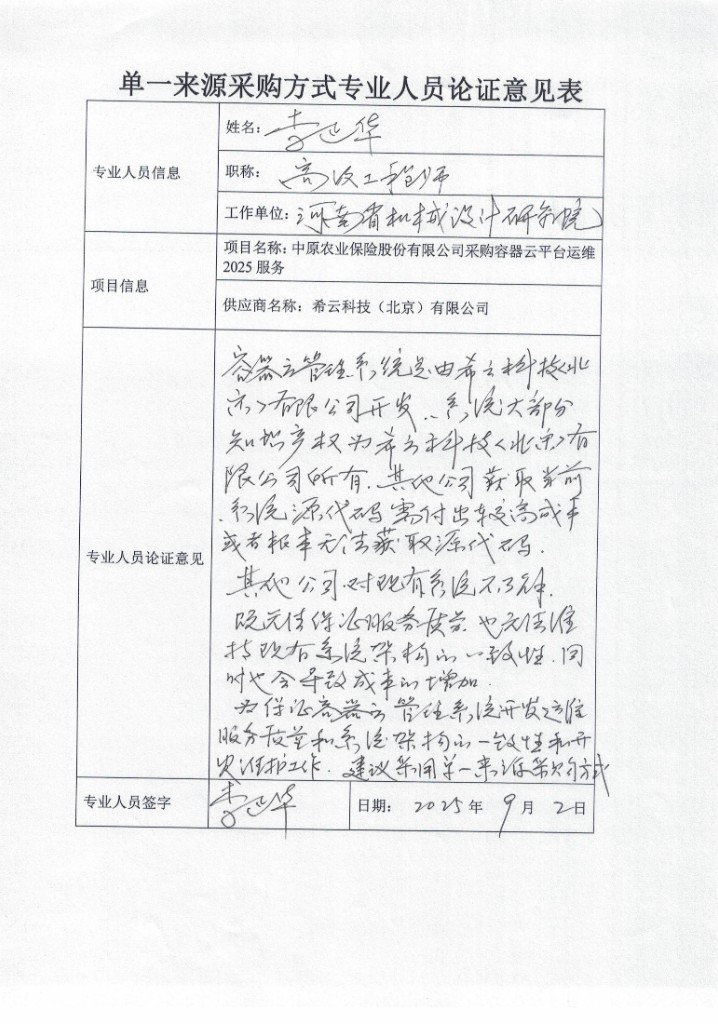 单一来源采购方式专业人员论证意见表
专业人员信息
姓名：李华
职称：高级工程师
工作单位：河南省机械设计研究院
项目信息
项目名称：中原农业保险股份有限公司采购容器云平台运维
2025 服务
供应商名称：希云科技（北京）有限公司
专业人员论证意见
容器云管理系统是由希云科技（北
京）有限公司开发，系统大部分
知识产权为希云科技（北京）有
限公司所有．其他公司获取当前
系统源代码需付出较高成本
或者根本无法获取源代码．
其他公司对现有系统不了解．
既无法保证服务质量 也无法维
持现有系统架构的一致性．同
时也会导致成本的增加．
为保证容器云管理系统开发运维
服务质量和系统架构的一致性和开
发维护工作．建议采用单一来源采购方式
专业人员签字
李华
日期： 2025 年 9 月 2 日